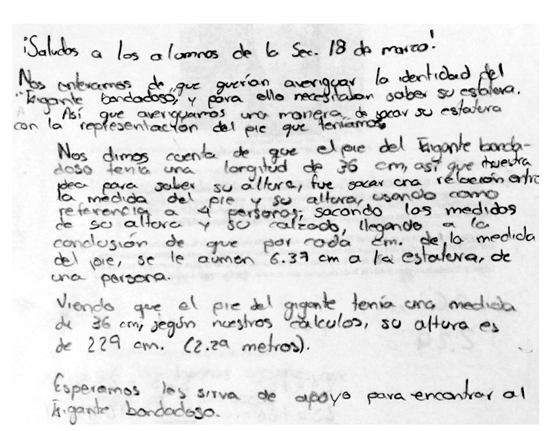 ¡Saludos a los alumnos de la Sec. 18 de marzo!
Nos enteramos de que querían averiguar la identidad del
"Gigante bondadoso", y para ello necesitaban saber su estatura.
Así que averiguamos una manera de sacar su estatura
con la representación del pie que teníamos
Nos dimos cuenta de que el pie del Gigante bonda-
doso tenía una longitud de 36 cm, así que nuestra
idea para saber su altura, fue sacar una relación entre
la medida del pie y su altura, usando como
referencia a 4 personas, sacando las medidas
de su altura y su calzado, llegando a la
conclusión de que por cada cm. de la medida
del pie, se le aumen 6.37 cm a la estatura, de
una persona.
Viendo que el pie del gigante tenía una medida
de 36 cm, según nuestros cálculos, su altura es
de 229 cm. (2.29 metros).
Esperamos les sirva de apoyo para encontrar al
Gigante bondadoso.